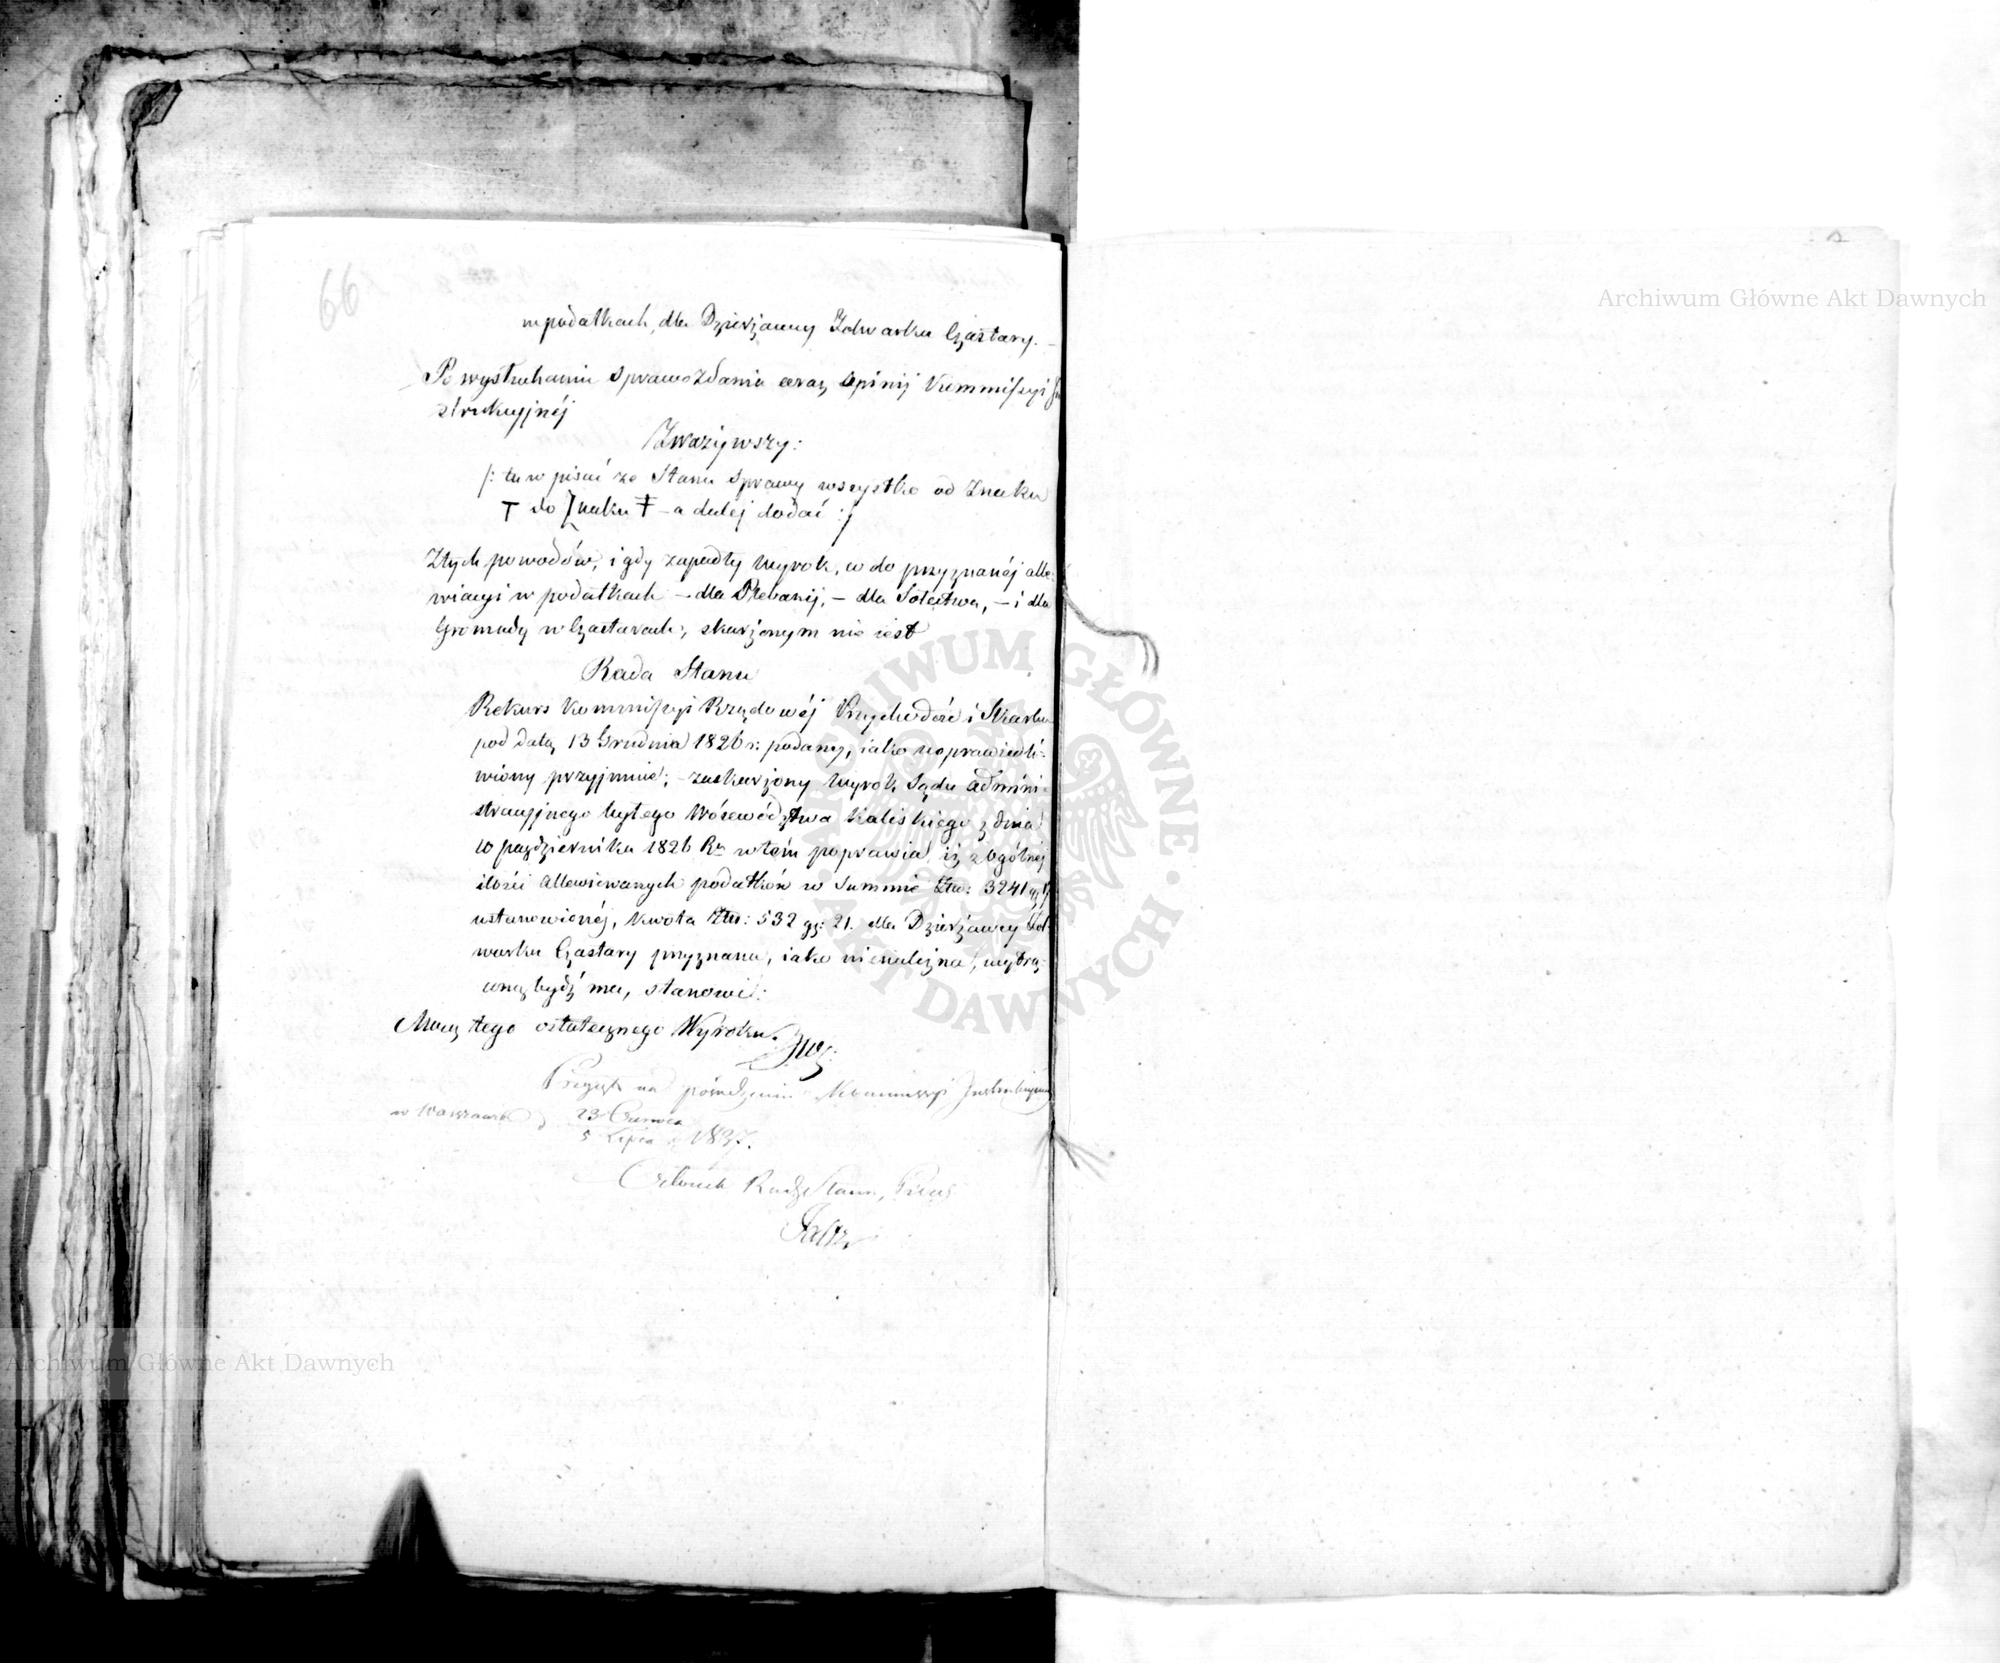 66
w podatkach, dla Dzierżawcy Folwarku Czastary. –
Po wysłuchaniu Sprawozdania oraz opinij Kommissyi In
strukcyjnéj
Zważywszy:
/: tu wpisać ze Stanu Sprawy wszystko od Znaku
T do Znaku ‡ – a daléj dodać :/
Z tych powodów, i gdy zapadły Wyrok, co do przyznanéj alle-
wiacyi w podatkach – dla Plebanij, – dla Sołectwa, – i dla
Gromady w Czastarach, skarżonym nie iest
Rada Stanu
Rekurs Kommissyi Rządowéj Przychodów i Skarbu
pod datą 13 Grudnia 1826 r: podany, iako usprawiedli-
wiony przyjmuie; – zaskarżony Wyrok Sądu Admini-
stracyjnego byłego Wóiewództwa Kaliskiego z dnia
10 października 1826 Ru w tém poprawia, iż z ogólnéj
ilości allewiowanych podatków w Summie Złtt: 3241 gr
ustanowionéj, kwota Złtt: 532 gr: 21. dla Dzierżawcy Fol-
warku Czastary przyznana, iako nienależna, wytrą-
coną bydź ma, stanowi:
Mocą tego ostatecznego Wyroku.
Przyięty na posiedzeniu Kommissyi Instrukcyjnéj
w Warszawie d 23 Czerwca
5 Lipca 1837.
Członek Rady Stanu,
Archiwum Główne Akt Dawnych
Archiwum Główne Akt Dawnych
ARCHIWUM GŁÓWNE · AKT DAWNYCH ·